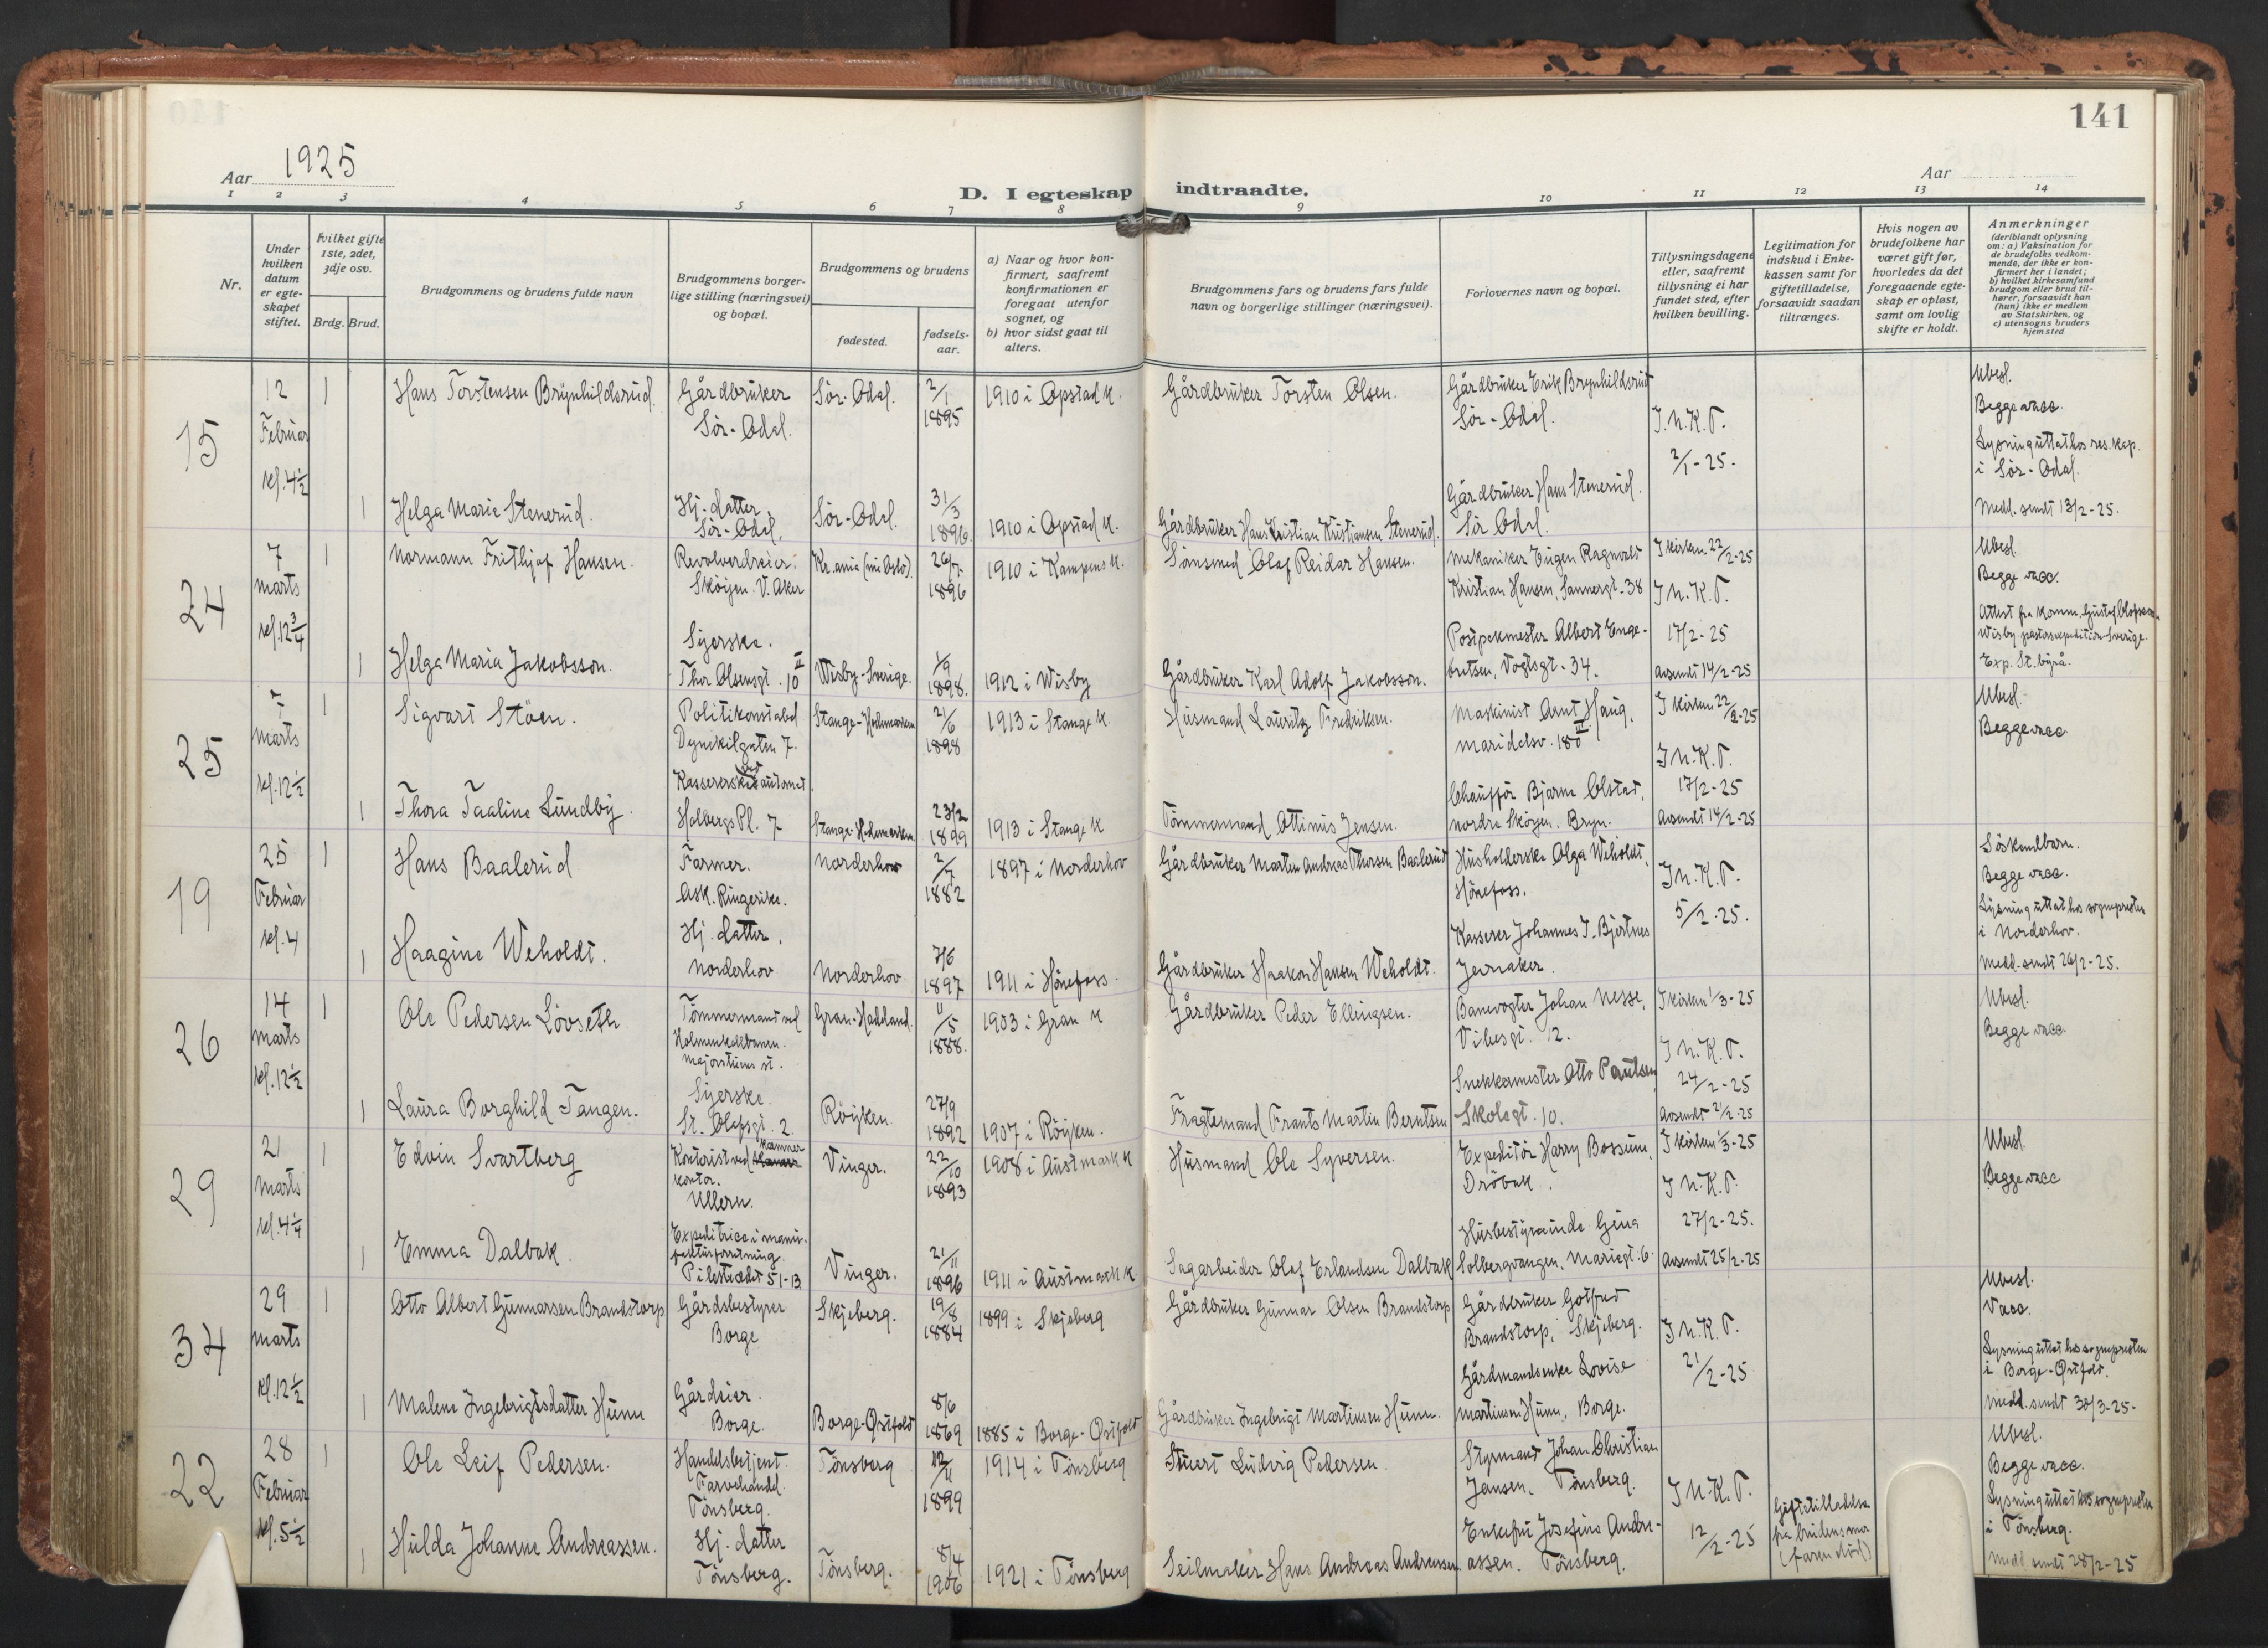 141
Aar 1925
Aar
D. I egteskap indtraadte.
1 2 3 4 5 6 7 8 9 10 11 12 13 14
Nr.
Under hvilken datum er egteskapet stiftet.
Hvilket gifte 1ste, 2det, 3dje osv.
Brdg. Brud.
Brudgommens og brudens fulde navn
Brudgommens borgerlige stilling (næringsvei) og bopæl.
Brudgommens og brudens
fødested. fødsels-aar.
a) Naar og hvor konfirmert, saafremt konfirmationen er foregaat utenfor sognet, og
b) hvor sidst gaat til alters.
Brudgommens fars og brudens fars fulde navn og borgerlige stillinger (næringsvei).
Forlovernes navn og bopæl.
Tillysningsdagene eller, saafremt tillysning ei har fundet sted, efter hvilken bevilling.
Legitimation for indskud i Enkekassen samt for giftetilladelse, forsaavidt saadan tiltrænges.
Hvis nogen av brudefolkene har været gift før, hvorledes da det foregaaende egteskap er opløst, samt om lovlig skifte er holdt.
Anmerkninger
(deriblandt oplysning om: a) Vaksination for de brudefolks vedkommende, der ikke er konfirmert her i landet;
b) hvilket kirkesamfund brudgom eller brud tilhører, forsaavidt han (hun) ikke er medlem av Statskirken, og
c) utensogns bruders hjemsted
15
12 Februar kl. 4½
1 Hans Torstensen Brynhildsrud. Gårdbruker Sör-Odal. Sör-Odal. 2/1 1895 1910 i Opstad k. Gårdbruker Torsten Olsen. Gårdbruker Erik Brynhildsrud Sör-Odal.
J.N.K.T. 2/1-25.
Ubesl.
Begge vacc.
Lysning uttat hos res. kap. i Sör-Odal.
Medl. sendt 13/2-25.
1 Helga Marie Stenerud. Hj. datter, Sör-Odal. Sör-Odal. 31/3 1896. 1910 i Opstad k. Gårdbruker Hans Kristian Kristiansen Stenerud. Gårdbruker Hans Stenerud. Sör Odal.
24
7 marts kl. 12¾
1 Normann Frithjof Hansen. Revolverdreier. Sköyen. V. Aker Kr.ania (nu Oslo). 26/7 1896 1910 i Kampens k. Olaf Reidar Hansen. Mekaniker Eugen Ragnvald Kristian Hansen, Sannergt. 38
I kirken 22/2-25
J N.K.T. 17/2-25
Avsendt 14/2-25
Ubesl.
Begge vacc.
Attest fra komm. Gustaf Olofsson Wisby pastorsexpedition Sverige.
Exp. St. byrå.
1 Helga Maria Jakobsson. Syerske. Thor Olsensgt. 10 II Wisby-Sverige. 1/9 1898. 1912 i Wisby Gårdbruker Karl Adolf Jakobsson. Postpakmester Albert Engebretsen, Vogtsgt. 34.
25
7 marts kl. 12½
1 Sigvart Stöen. Politikonstabel Dynekilgaten 7. Stange-Hedemarken 21/6 1898 1913 i Stange k. Husmand Lauritz Fredriksen. Maskinist Arnt Haug, Maridalsv. 180 III
I kirken 22/2-25
J.N.K.T. 17/2-25
Avsendt 14/2-25
Ubesl.
Begge vacc
1 Thora Taaline Lundby. Kassererske ved automat. Holbergs Pl. 7 Stange-Hedemarken 23/2 1899 1913 i Stange k Tömmermand Ottinius Jensen. Chauffør Bjarne Olstad, Nordre Sköyen. Bryn.
19
25 Februar kl. 4
1 Hans Baalerud Farmer. Ask. Ringerike. Norderhov 2/7 1882 1897 i Norderhov Gårdbruker Marten Andreas Thorsen Baalerud Husholderske Olga Weholdt, Hönefoss.
J N.K.T. 5/2-25.
Söskendbarn.
Begge vacc.
Lysning uttat hos sognepresten i Norderhov.
Medd. sendt 26/2-25.
1 Haagine Weholdt. Hj. datter. Norderhov Norderhov 7/6 1897 1911 i Hönefoss Gårdbruker Haakon Hansen Weholdt. Kasserer Johannes J. Bjertnes Jevnaker.
26
14 marts kl. 12½
1 Ole Pedersen Lövseth Tömmermand ved Holmenkolbanen. Majorstuens st. Gran-Hadeland. 11/5 1888. 1903 i Gran k Gårdbruker Peder Ellingsen. Banevogter Johan Nesse, Vibesgt. 12.
I kirken 1/3-25
J N.K.T. 24/2-25
Avsendt 21/2-25
Ubesl.
Begge vacc.
1 Laura Borghild Tangen. Syerske. St. Olafsgt. 2 Röyken 27/9 1892 1907 i Röyken. Fragtemand Frants Martin Berntsen Snekkermester Otto Paulsen Skolegt. 10.
29
21 marts kl. 4¼
1 Edvin Svartberg Kontorist ved kamner kontor. Ullern. Vinger. 22/10 1893 1908 i Austmark k Husmand Ole Syversen. Expeditör Harry Bossum, Dröbak.
I kirken 1/3-25
J N.K.T. 27/2-25.
Avsendt 25/2-25
Ubesl.
Begge vacc
1 Emma Dalbak. Expeditrice i manufakturforretning. Pilestrædet 51-13 Vinger. 21/11 1896 1911 i Austmark k Sagarbeider Olaf Erlandsen Dalbak Husbestyrerinde Gina Solbergvangen, Mariegt. 6.
34
29 marts kl. 12½
1 Otto Albert Gunnarsen Brandstorp Gårdsbestyrer Borge Skjeberg. 19/8 1884 1899 i Skjeberg Gårdbruker Gunnar Olsen Brandstorp Gårdbruker Gotfred Brandstorp, Skjeberg.
J N.K.T. 21/2-25
Ubesl.
Vacc.
Lysning uttat hos sognepresten i Borge-Østfold.
Medd. sendt 30/3-25.
1 Malene Ingebrigtsdatter Hunn Gårdeier. Borge. Borge-Östfold 8/6 1869 1885 i Borge-Östfold Gårdbruker Ingebrigt Martinsen Hunn. Gårdmandsenke Lovise Martinsen Hunn, Borge.
22
28 Februar kl. 5½
1 Ole Leif Pedersen. Handelsbetjent. Farvehandel. Tönsberg. Tönsberg 12/11 1899 1914 i Tönsberg Stuert Ludvig Pedersen. Styrmand Johan Christian Jansen, Tönsberg.
J N.K.T. 12/2-25
Giftetilladelse fra brudens mor (faren död)
Ubesl.
Begge vacc.
Lysning uttat hos sognepresten i Tönsberg.
Medd sendt 28/2-25
1 Hulda Johanne Andreassen. Hj. datter Tönsberg. Tönsberg. 8/4 1906 1921 i Tönsberg Seilmaker Hans Andreas Andreassen Enkefru Josefine Andreassen. Tönsberg.